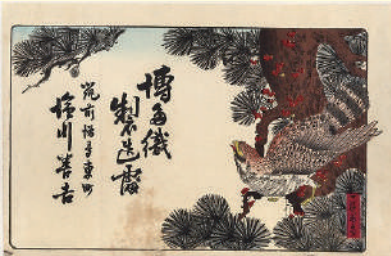 博多織
製造處
筑前福岡東町
川善吉